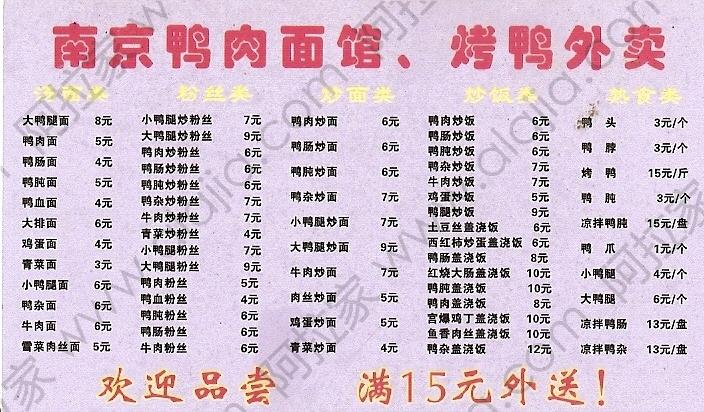 南京鸭肉面馆、烤鸭外卖
汤面类
大鸭腿面 8元
鸭肉面 5元
鸭肠面 4元
鸭肫面 5元
鸭血面 4元
大排面 6元
鸡蛋面 4元
青菜面 3元
小鸭腿面 6元
鸭杂面 6元
牛肉面 6元
雪菜肉丝面 5元
粉丝类
小鸭腿炒粉丝 7元
大鸭腿炒粉丝 9元
鸭肉炒粉丝 6元
鸭肠炒粉丝 6元
鸭肫炒粉丝 6元
鸭杂炒粉丝 7元
牛肉炒粉丝 7元
青菜炒粉丝 4元
小鸭腿粉丝 7元
大鸭腿粉丝 9元
鸭肉粉丝 5元
鸭血粉丝 4元
鸭肫粉丝 6元
鸭肠粉丝 6元
牛肉粉丝 6元
炒面类
鸭肉炒面 6元
鸭肠炒面 6元
鸭肫炒面 6元
鸭杂炒面 7元
小鸭腿炒面 7元
大鸭腿炒面 9元
牛肉炒面 7元
肉丝炒面 5元
鸡蛋炒面 5元
青菜炒面 4元
炒饭类
鸭肉炒饭 6元
鸭肠炒饭 6元
鸭肫炒饭 6元
鸭杂炒饭 7元
牛肉炒饭 7元
鸡蛋炒饭 5元
鸭腿炒饭 9元
土豆丝盖浇饭 6元
西红柿炒蛋盖浇饭 6元
鸭肠盖浇饭 8元
红烧大肠盖浇饭 10元
鸭肫盖浇饭 10元
鸭肉盖浇饭 8元
宫爆鸡丁盖浇饭 10元
鱼香肉丝盖浇饭 10元
鸭杂盖浇饭 12元
熟食类
鸭头 3元/个
鸭脖 3元/个
烤鸭 15元/斤
鸭肫 3元/个
凉拌鸭肫 15元/盘
鸭爪 1元/个
小鸭腿 4元/个
大鸭腿 6元/个
凉拌鸭肠 13元/盘
凉拌鸭杂 13元/盘
欢迎品尝 满15元外送!
阿拉家 www.alajia.com